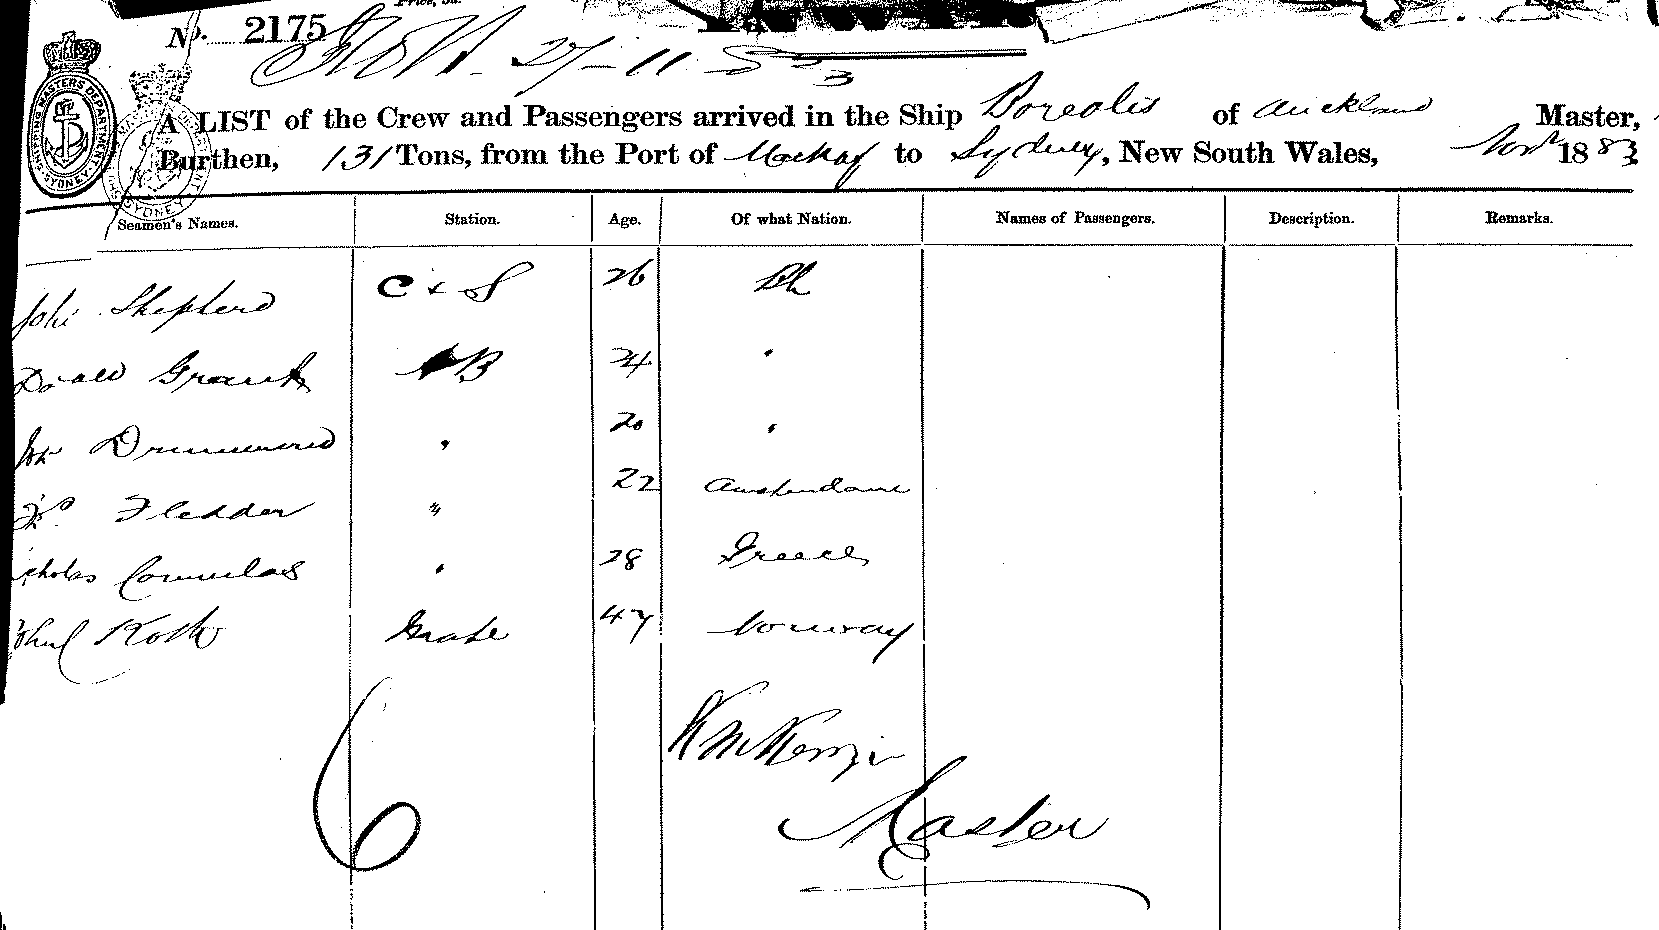 No. 2175
27-11-83
A LIST of the Crew and Passengers arrived in the Ship Borealis of Auckland Master,
Burthen, 131 Tons, from the Port of Mackay to Sydney, New South Wales, Novr 1883
SHIPPING MASTERS DEPARTMENT SYDNEY
Seamen's Names. Station. Age. Of what Nation. Names of Passengers. Description. Remarks.
Shepherd C & S 26
Grant AB 24 "
Drummond " 20 "
Fledder " 22 Amsterdam
icholas " 28 Greece
Koth Mate 47 Norway
6
K McKenzie
Master